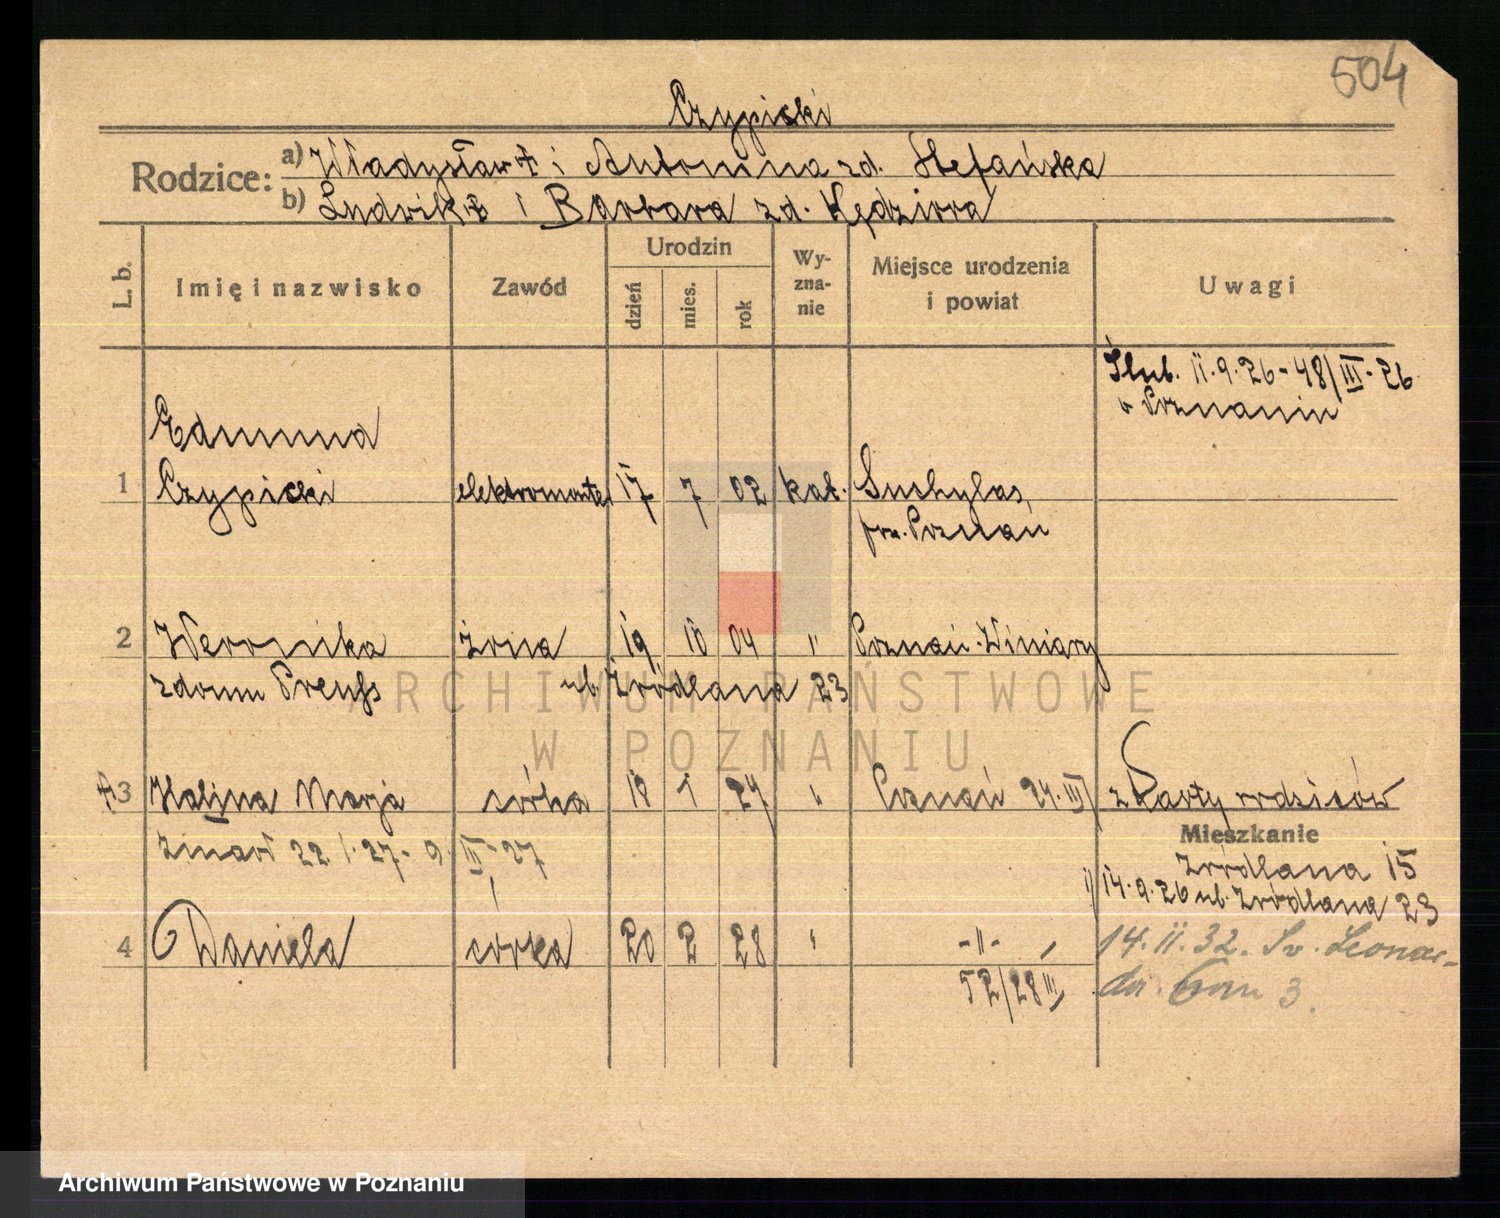 504
Czypicki
Rodzice: a) Władysław + i Antonina zd. Stefańska
b) Ludwik + i Barbara zd. Kędziora
L. b. Imię i nazwisko Zawód Urodzin dzień mies. rok Wyznanie Miejsce urodzenia i powiat Uwagi
Ślub. 11.9.26 - 48/III - 26
w Poznaniu
Edmund
1 Czypicki elektromonter 17 7 02 kat. Suchylas,
pow. Poznań
2 Weronika żona 19 10 04 " Poznań-Winiary
zdomu Preuſs ul. Źródlana 23
3 Halina Marja córka 18 1 27 " Poznań 24.III z karty rodziców
Mieszkanie
zmarł 22.1.27 - 9. III - 27
Źródlana 15
14.9.26 ul. Źródlana 23
4 Daniela córka 20 2 28 " -"- 14.11.32. Św. Leonar-
52/28 III da. Dom 3.
ARCHIWUM PAŃSTWOWE
W POZNANIU
Archiwum Państwowe w Poznaniu